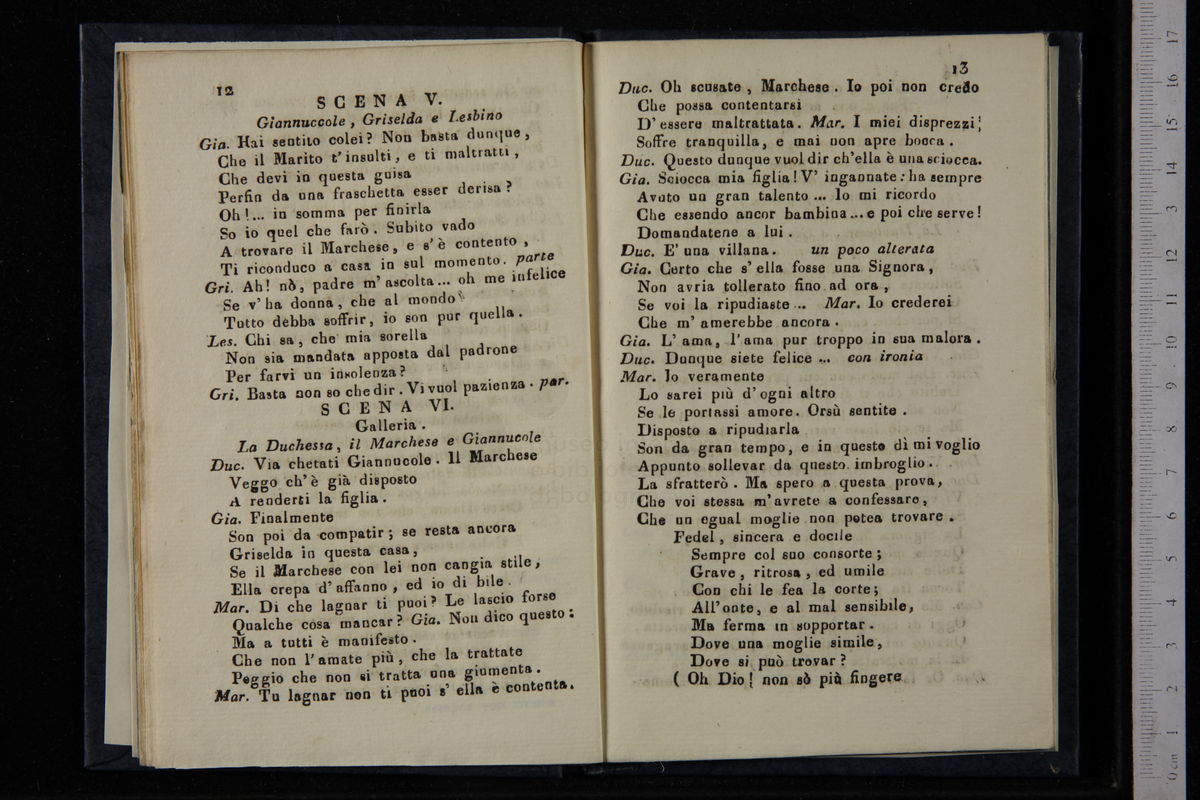 12
SCENA V.
Giannuccole, Griselda e Lesbino
Gia. Hai sentito colei? Non basta dunque,
Che il Marito t'insulti, e ti maltratti,
Che devi in questa guisa
Perfin da una fraschetta esser derisa?
Oh!... in somma per finirla
So io quel che farò. Subito vado
A trovare il Marchese, e s'è contento,
Ti riconduco a casa in sul momento. parte
Gri. Ah! nò, padre m'ascolta... oh me infelice
Se v'ha donna, che al mondo
Tutto debba soffrir, io son pur quella.
Les. Chi sa, che mia sorella
Non sia mandata apposta dal padrone
Per farvi un insolenza?
Gri. Basta non so che dir. Vi vuol pazienza. par.
SCENA VI.
Galleria.
La Duchessa, il Marchese e Giannucole
Duc. Via chetati Giannucole. Il Marchese
Veggo ch'è già disposto
A renderti la figlia.
Gia. Finalmente
Son poi da compatir; se resta ancora
Griselda in questa casa,
Se il Marchese con lei non cangia stile,
Ella crepa d'affanno, ed io di bile.
Mar. Di che lagnar ti puoi? Le lascio forse
Qualche cosa mancar? Gia. Non dico questo:
Ma a tutti è manifesto.
Che non l'amate più, che la trattate
Peggio che non si tratta una giumenta.
Mar. Tu lagnar non ti puoi s'ella è contenta.
13
Duc. Oh scusate, Marchese. Io poi non credo
Che possa contentarsi
D'essere maltrattata. Mar. I miei disprezzi
Soffre tranquilla, e mai non apre bocca.
Duc. Questo dunque vuol dir ch'ella è una sciocca.
Gia. Sciocca mia figlia! V'ingannate: ha sempre
Avuto un gran talento... Io mi ricordo
Che essendo ancor bambina... e poi che serve!
Domandatene a lui.
Duc. E' una villana. un poco alterata
Gia. Certo che s'ella fosse una Signora,
Non avria tollerato fino ad ora,
Se voi la ripudiaste... Mar. Io crederei
Che m'amerebbe ancora.
Gia. L'ama, l'ama pur troppo in sua malora.
Duc. Dunque siete felice... con ironia
Mar. Io veramente
Lo sarei più d'ogni altro
Se le portassi amore. Orsù sentite.
Disposto a ripudiarla
Son da gran tempo, e in questo dì mi voglio
Appunto sollevar da questo imbroglio.
La sfratterò. Ma spero a questa prova,
Che voi stessa m'avrete a confessare,
Che un egual moglie non potea trovare.
Fedel, sincera e docile
Sempre col suo consorte;
Grave, ritrosa, ed umile
Con chi le fea la corte;
All'onte, e al mal sensibile,
Ma ferma in sopportar.
Dove una moglie simile,
Dove si può trovar?
( Oh Dio! non sò più fingere